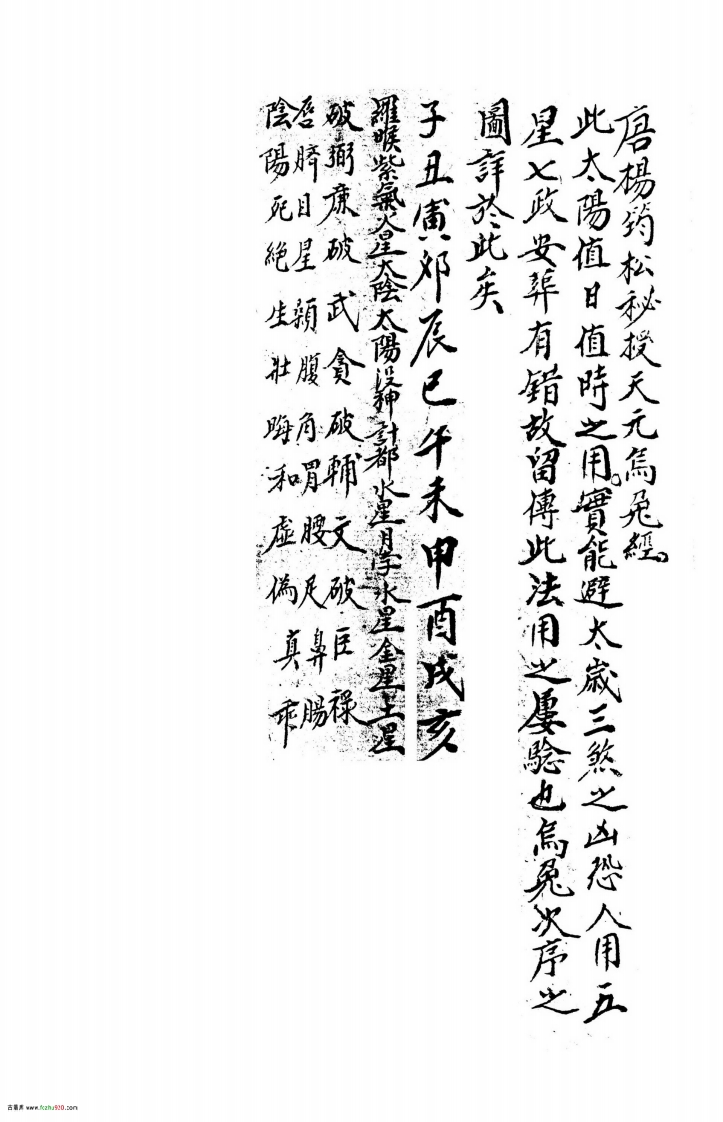 唐楊筠松秘授天元烏兔經。
此太陽值日值時之用。實能避太歲三煞之凶恐人用五
星七政安葬有錯故留傳此法用之屢驗也烏兔次序之
圖詳於此矣
子丑寅夘辰巳午未申酉戌亥
羅㬋紫氣火星太陰太陽沒神計都水星月孛水星金星土星
破弼廉破武貪破輔文破巨祿
唇臍目星顙腹角胃腰足鼻腸
陰陽死絕生壯晦和虛偽真乖
古籍库 www.fozhu920.com